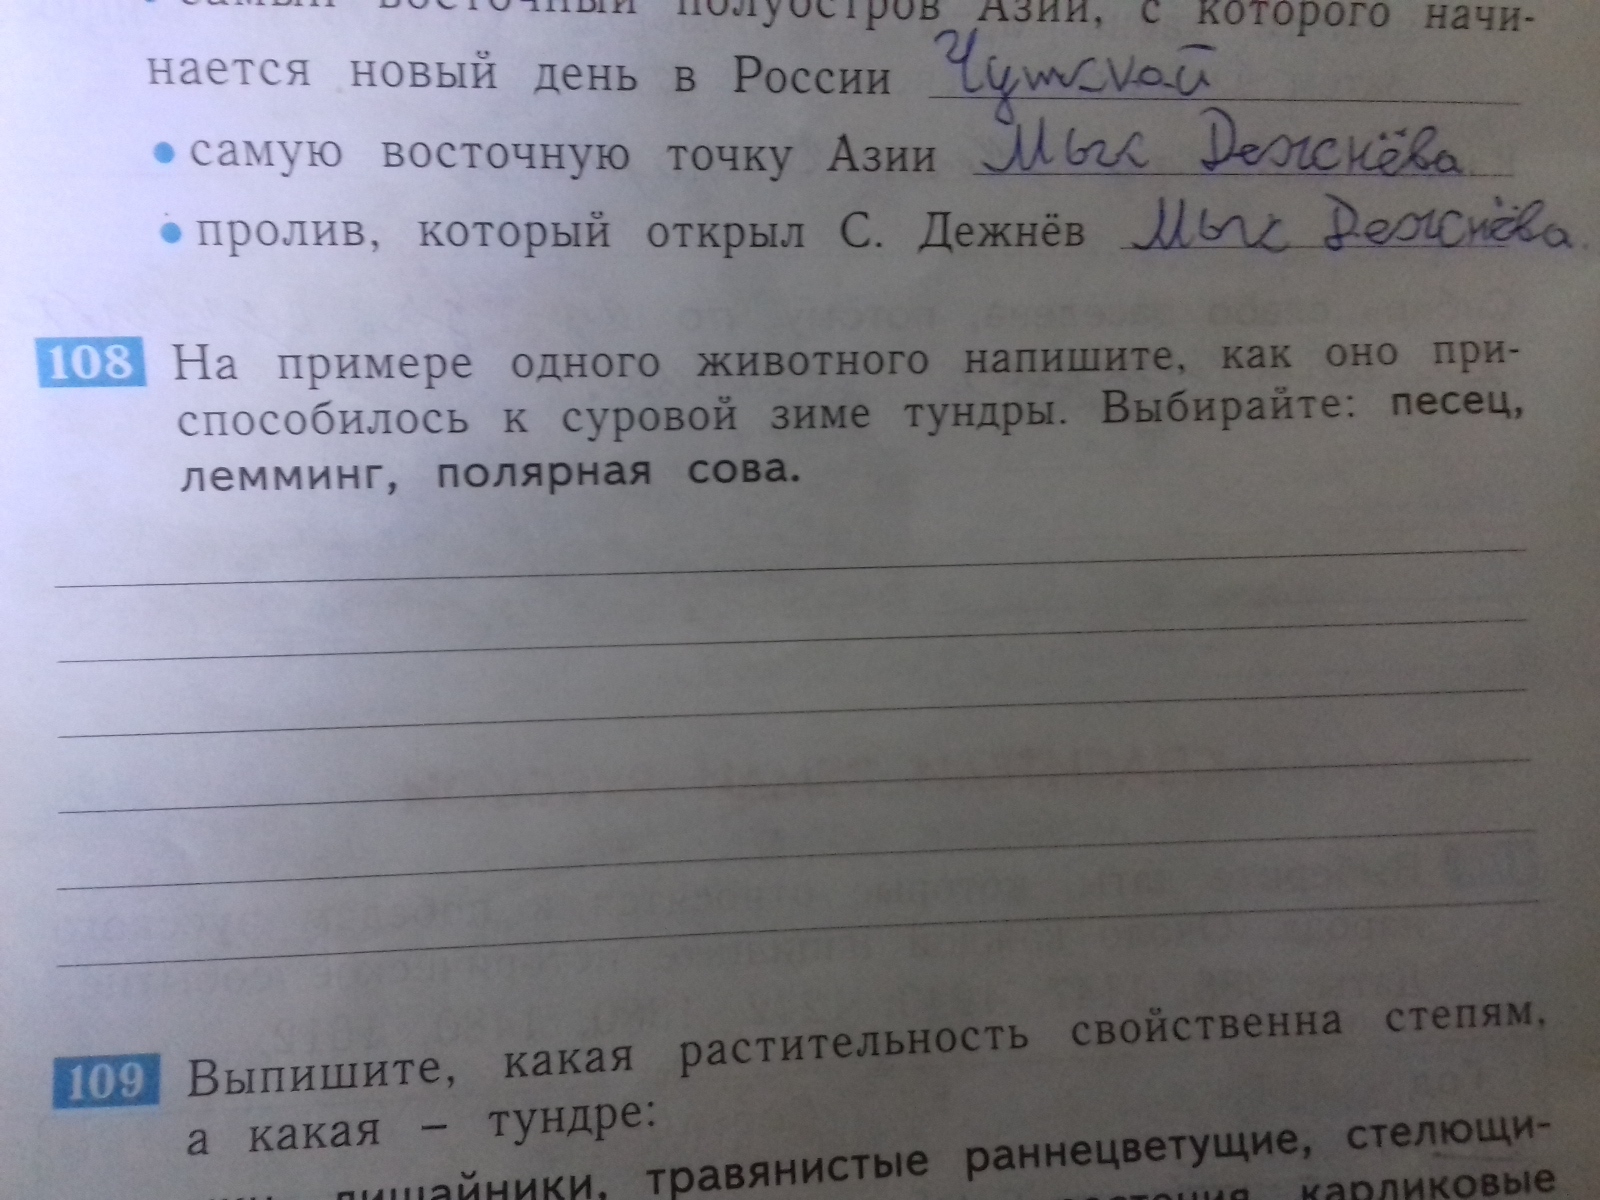 самый восточный полуостров Азии, с которого начи-
нается новый день в России Чутской
• самую восточную точку Азии Мыс Дежнёва
• пролив, который открыл С. Дежнёв Мыс Дежнёва.
108 На примере одного животного напишите, как оно при-
способилось к суровой зиме тундры. Выбирайте: песец,
лемминг, полярная сова.
109 Выпишите, какая растительность свойственна степям,
а какая – тундре:
лишайники, травянистые раннецветущие, стелющи-
карликовые